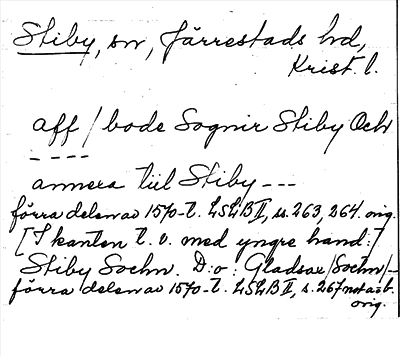 Stiby, sn, Järrestads hd,
Krist. l.
aff / bode Sognir Stiby Och
- - - -
annera till Stiby - - -
förra delen av 1570-t. LSLB II, s. 263, 264. orig.
[I kanten t. v. med yngre hand:]
Stiby Sochn. D:o: Gladsax/Sochn/--
förra delen av 1570-t. LSLB II, s. 267 not a o b.
orig.